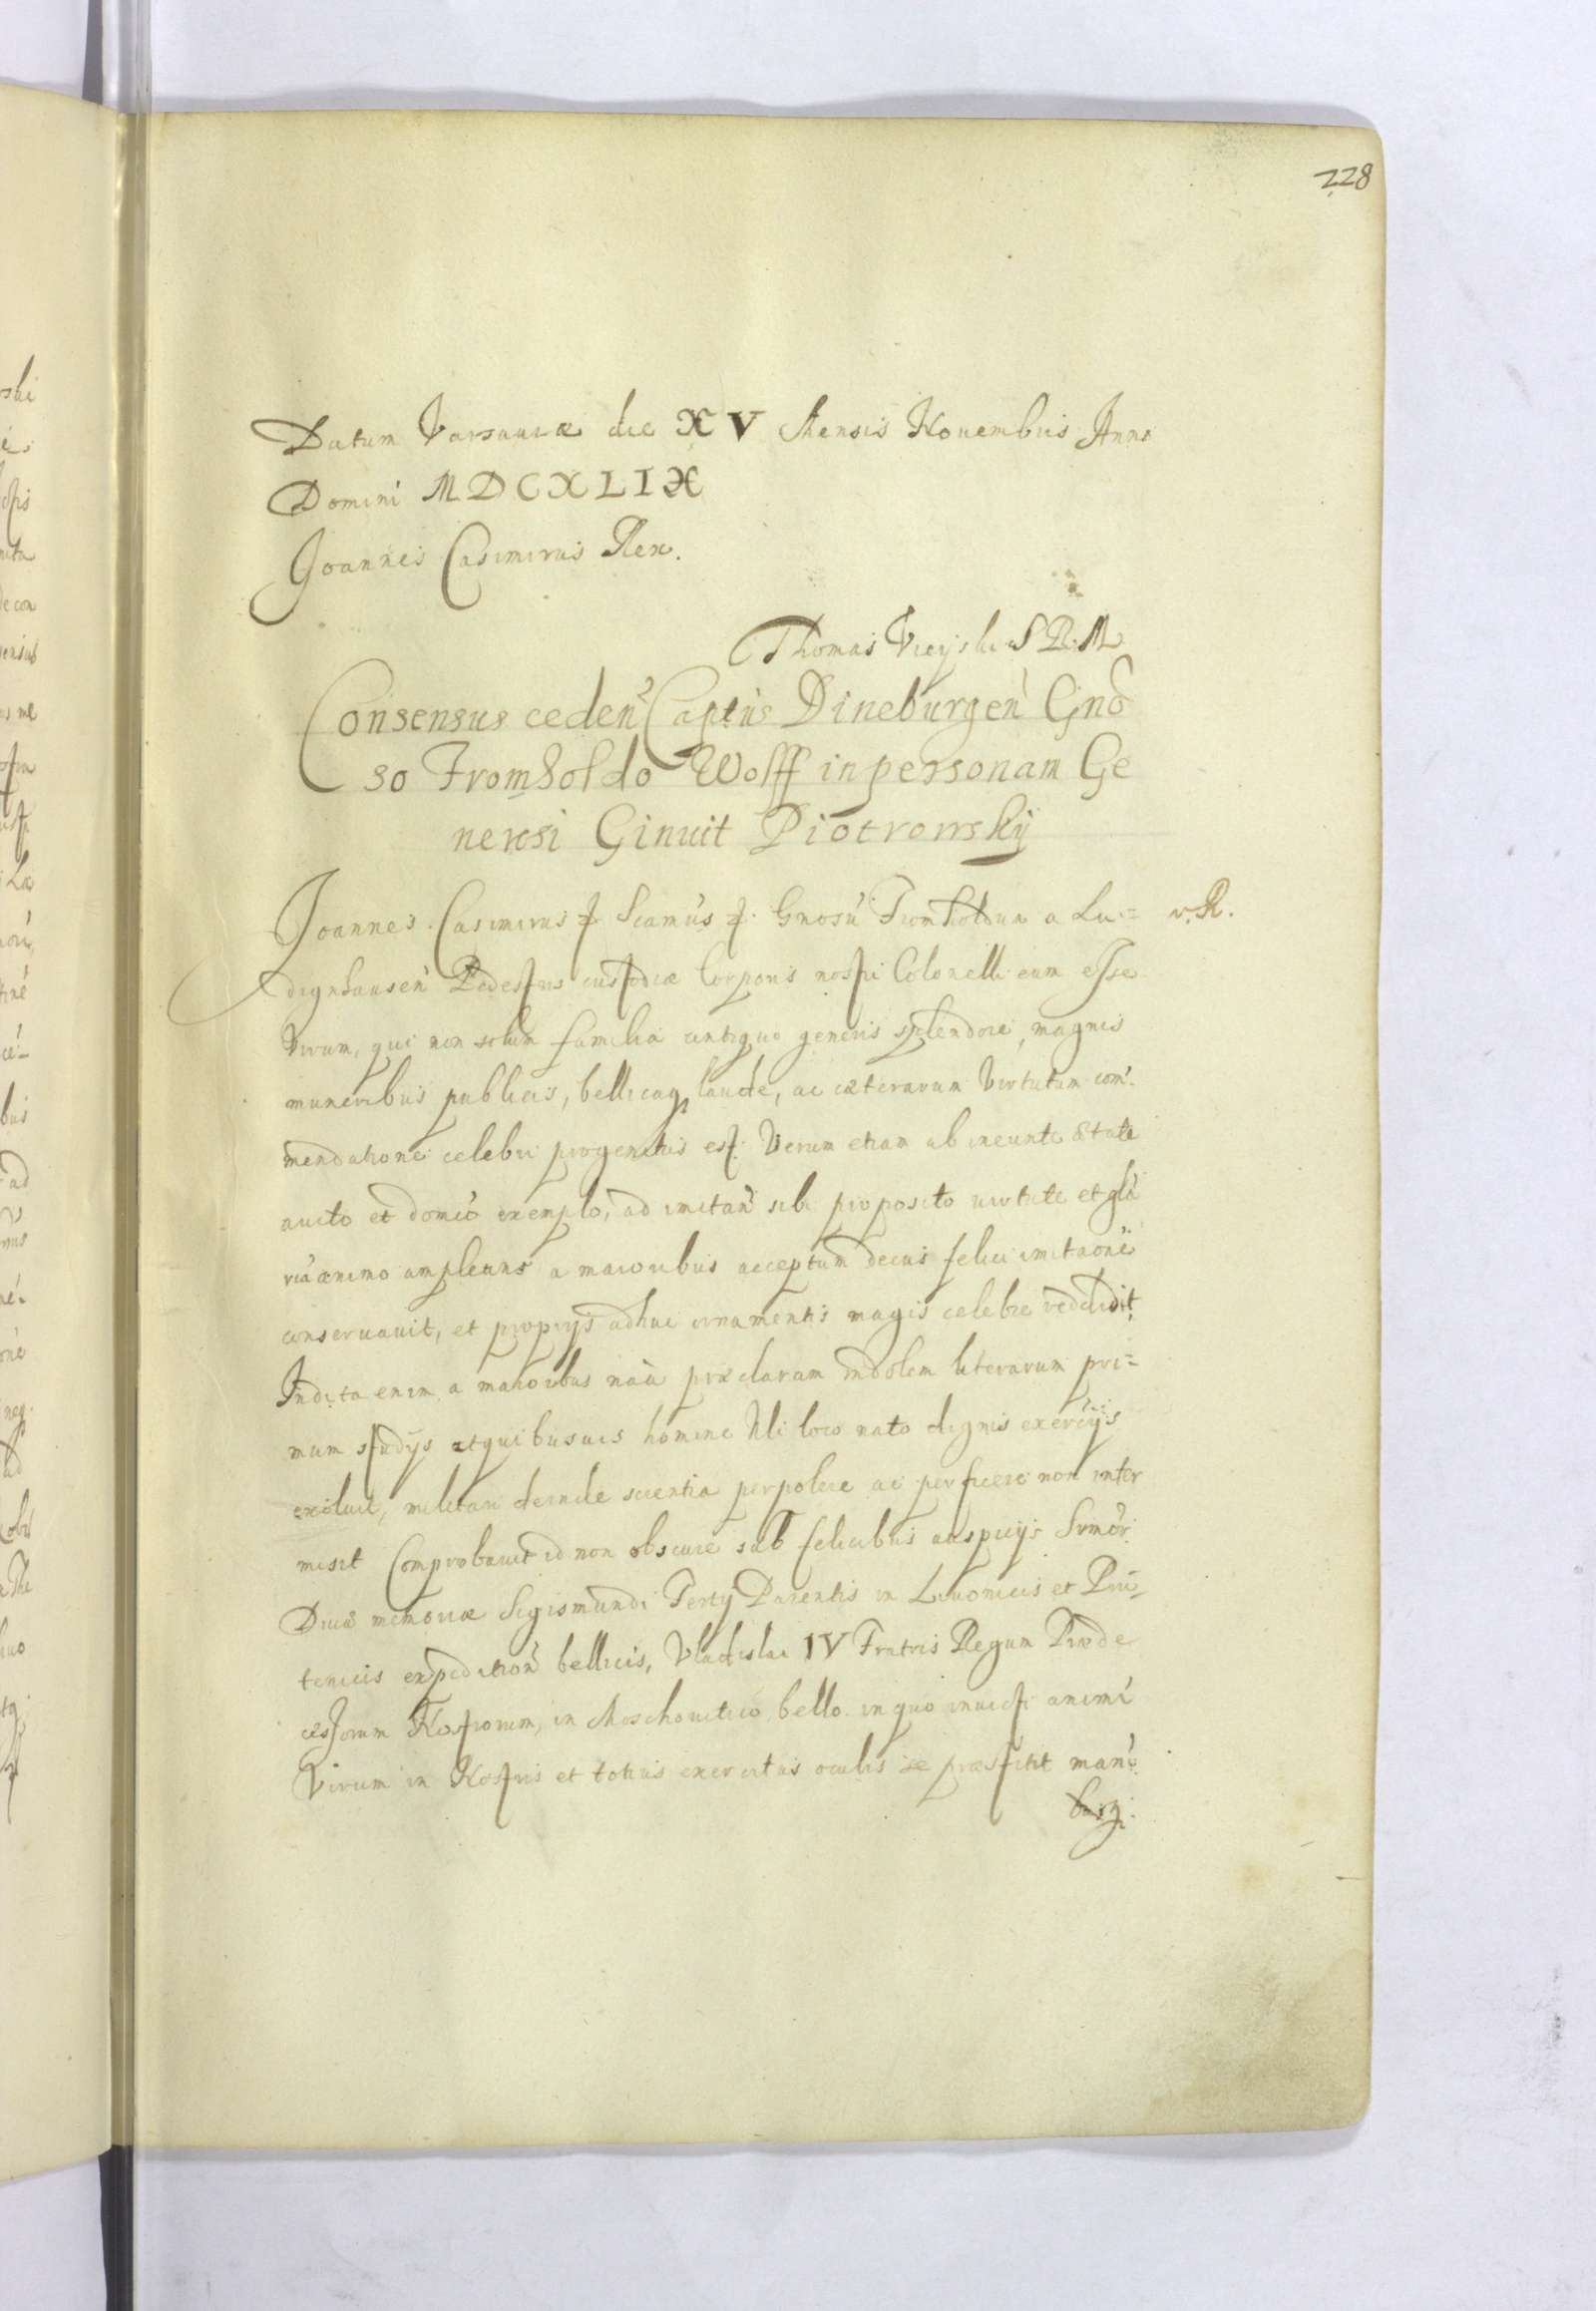 228
Datum Varsauiæ die XV Mensis Nouembris Anno
Domini MDCXLIX
Joannes Casimirus Rex.
Thomas Vieyski S R. M
Consensus ceden̄ Captūs Dineburgen̄ Gnō
so Fromholdo Wolff in personam Ge
nerosi Ginuit Piotrowskÿ
Joannes Casimirus Scamūs Gnosū Fromholdum a Lu= v. R.
dignhausen̄ Pedestris custodiæ Corporis nostri Colonelli eum esse
Virum, qui non solum familia antiquo generis splendore, magnis
muneribus publicis, bellicaq laude, ac cæterarum Virtutum com̄
mendatione celebri progenitus est. Verum etiam ab ineunte ætate
auito et domēo exemplo, ad imitan̄ sibi proposito uirtute et glā
riā animo amplectans a maioribus acceptum decus felici imitaonē
conseruauit, et proprijs adhuc ornamentis magis celebre reddidit,
Indita enim a maioribus naū præclaram indolem literarum pri=
mum studijs atque busuis homine Illi loco nato dignis exercijs
excoluit, militari deinde scientia perpolire ac perficere non inter
misit Comprobauit id non obscure sub felicibus auspicijs Srmōr
Diuæ memoriæ Sigismundi Tertij Parentis in Liuonicis et Pru=
tenicis expedition̄ bellicis, Vladislai IV Fratris Regum Præde
cessorum Nostrorum, in Moschouitico bello in quo inuicti animi
Virum in Nostris et totius exercitus oculis se præstitit man̄
busq.